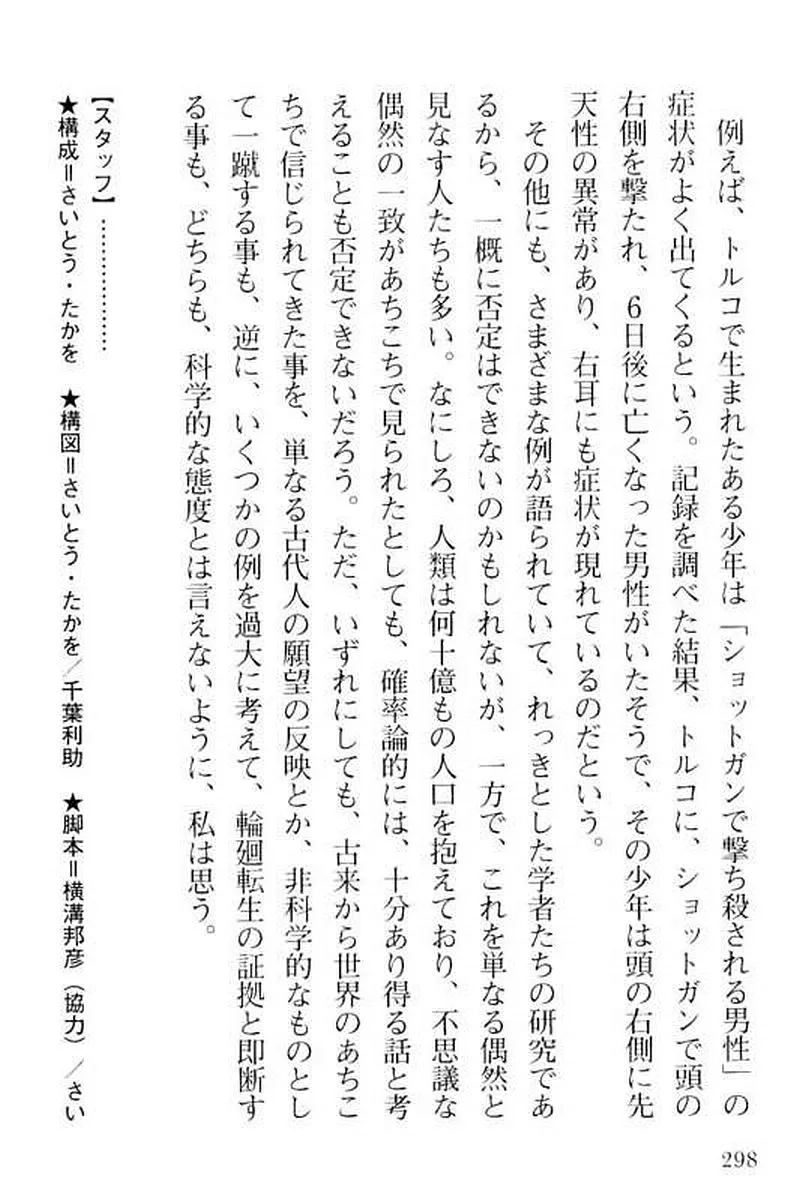 例えば、トルコで生まれたある少年は「ショットガンで撃ち殺される男性」の
症状がよく出てくるという。記録を調べた結果、トルコに、ショットガンで頭の
右側を撃たれ、6日後に亡くなった男性がいたそうで、その少年は頭の右側に先
天性の異常があり、右耳にも症状が現れているのだという。
その他にも、さまざまな例が語られていて、れっきとした学者たちの研究であ
るから、一概に否定はできないのかもしれないが、一方で、これを単なる偶然と
見なす人たちも多い。なにしろ、人類は何十億もの人口を抱えており、不思議な
偶然の一致があちこちで見られたとしても、確率論的には、十分あり得る話と考
えることも否定できないだろう。ただ、いずれにしても、古来から世界のあちこ
ちで信じられてきた事を、単なる古代人の願望の反映とか、非科学的なものとし
て一蹴する事も、逆に、いくつかの例を過大に考えて、輪廻転生の証拠と即断す
る事も、どちらも、科学的な態度とは言えないように、私は思う。
【スタッフ】………………
★構成＝さいとう・たかを ★構図＝さいとう・たかを／千葉利助 ★脚本＝横溝邦彦（協力）／さい
298